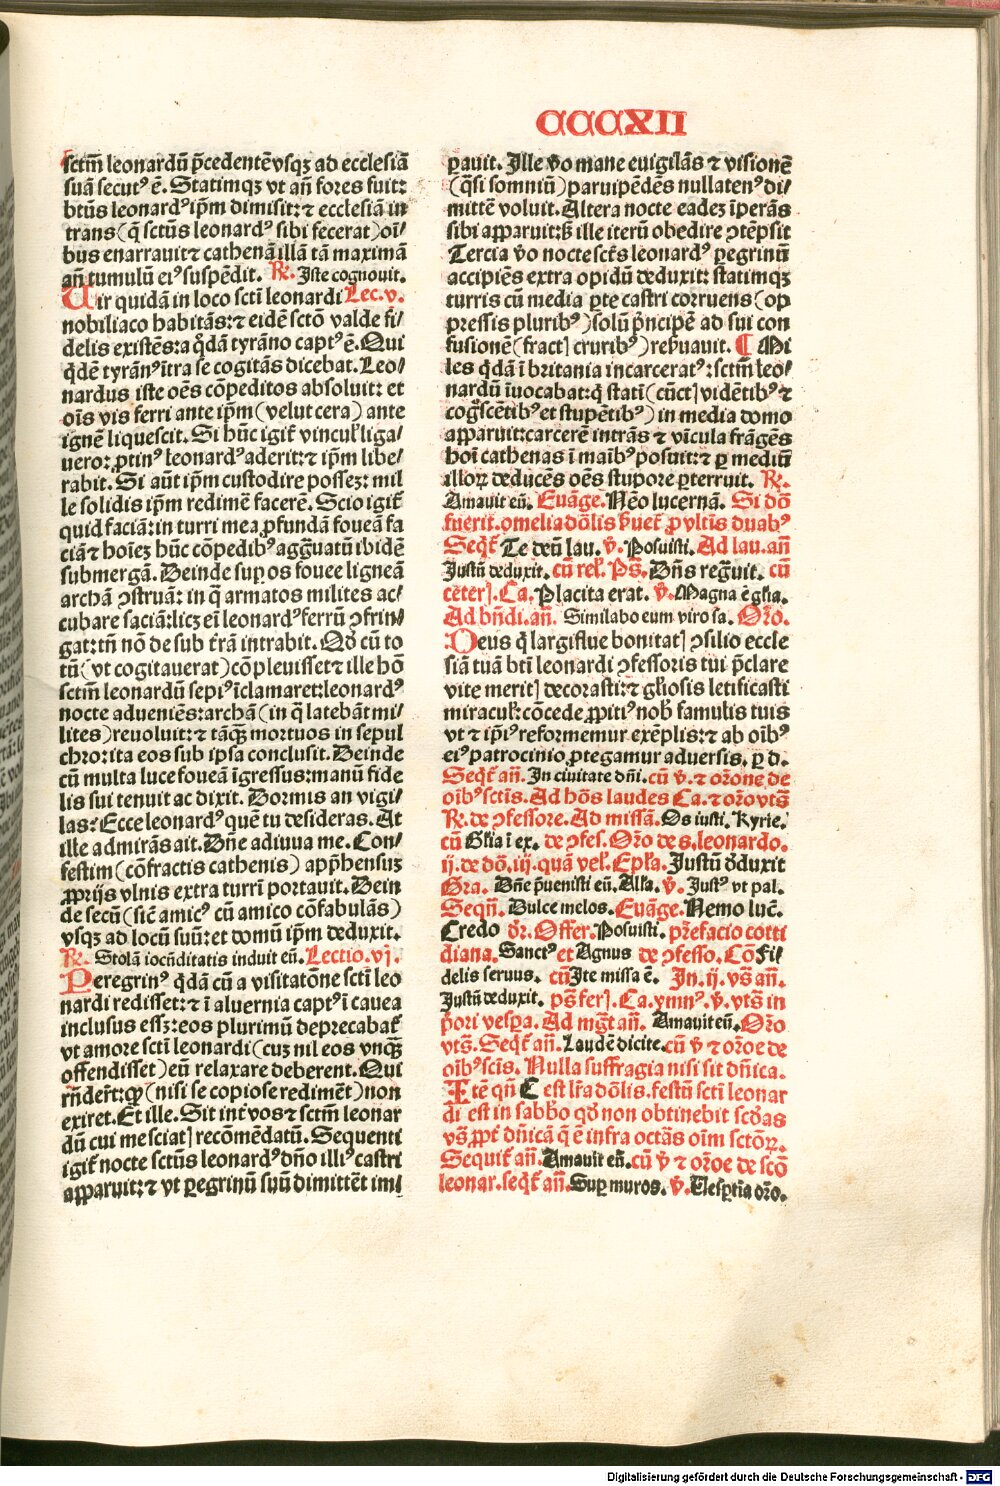 CCCXII
sctm̄ leonardū p̄cedentē vsqꝫ ad ecclesiā
suā secutꝰ ē. Statimqꝫ vt an̄ fores fuit:
btūs leonardꝰ ip̄m dimisit: ⁊ ecclesiā in
trans (q̄ sctūs leonardꝰ sibi fecerat) oī/
bus enarrauit ⁊ cathenā illā tā maximā
an̄ tumulū eiꝰ suspēdit. ℟. Iste cognouit.
Uir quidā in loco sctī leonardi Lec. v.
nobiliaco habitās: ⁊ eidē sctō valde fi/
delis existēs: a q̄dā tyrāno captꝰ ē. Qui
qdē tyrānꝰ ītra se cogitās dicebat. Leo/
nardus iste oēs cōpeditos absoluit: et
oīs vis ferri ante ip̄m (velut cera) ante
ignē liquescit. Si hūc igit̄ vincul̓ liga/
uero: ꝓtinꝰ leonardꝰ aderit: ⁊ ip̄m libe/
rabit. Si aūt ip̄m custodire possez: mil
le solidis ip̄m redimē facerē. Scio igit̄
quid faciā: in turri mea ꝓfundā foueā fa
ciā ⁊ hoīez hūc cōpedibꝰ aggͣuatū ibidē
submergā. Deinde suꝑ os fouee ligneā
archā ꝯstruā: in q̄ armatos milites ac/
cubare faciā: licꝫ eī leonardꝰ ferrū ꝯfrin/
gat: tn̄ nō de sub t̄rā intrabit. Qd̓ cū to
tū (vt cogitauerat) cōpleuisset: ⁊ ille hō
sctm̄ leonardū sepiꝰ īclamaret: leonardꝰ
nocte adueniēs: archā (in q̄ latebāt mi/
lites) reuoluit: ⁊ tāqꝫ mortuos in sepul
chro: ita eos sub ipsa conclusit. Deinde
cū multa luce foueā īgressus: manū fide
lis sui tenuit ac dixit. Dormis an vigi/
las: Ecce leonardꝰ quē tu desideras. At
ille admirās ait. Dn̄e adiuua me. Con/
festim (cōfractis cathenis) app̄hensuꝫ
ꝓprijs vlnis extra turrī portauit. Dein
de secū (sic̄ amicꝰ cū amico cōfabulās)
vsqꝫ ad locū suū: et domū ip̄m deduxit.
℟. Stolā iocūditatis induit eū. Lectio. vj.
Peregrinꝰ q̄dā cū a visitatōne sctī leo
nardi redisset: ⁊ ī aluernia captꝰ ī cauea
inclusus essꝫ: eos plurimū deprecabat̄
vt amore sctī leonardi (cuꝫ nil eos vnqꝫ
offendisset) eū relaxare deberent. Qui
rn̄derūt: ꝙ (nisi se copiose redimēt) non
exiret. Et ille. Sit int̄ vos ⁊ sctm̄ leonar
dū cui me sciatꝭ recōmēdatū. Sequenti
igit̄ nocte sctūs leonardꝰ dn̄o illiꝰ castri
apparuit: ⁊ vt ꝑegrinū suū dimittēt im/
ꝑauit. Ille v̓o mane euigilās ⁊ visionē
(qͣsi somniū) paruipēdēs nullatenꝰ di/
mittē voluit. Altera nocte eadeꝫ īperās
sibi apparuit: sꝫ ille iterū obedire ꝯtēpsit
Tercia v̓o nocte sctūs leonardꝰ ꝑegrinū
accipiēs extra opidū deduxit: statimqꝫ
turris cū media ꝑte castri corruens (op
pressis pluribꝰ) solū p̄ncipē ad sui con
fusionē (fractꝭ cruribꝰ) reẜuauit. ¶ Mi
les q̄dā ī britania incarceratꝰ: sctm̄ leo/
nardū īuocabat: q̄ statī (cūctꝭ vidētibꝰ ⁊
cogscētibꝰ et stupētibꝰ) in media domo
apparuit: carcerē intrās ⁊ vīcula frāgēs
hoī cathenas ī maībꝰ posuit: ⁊ ꝑ mediū
illoꝝ deducēs oēs stupore ꝑterruit. ℟.
Amauit eū. Euāge. Nēo lucernā. Si dō
fuerit. omelia dōlis p̄uet̄ ꝓ vltīs duabꝰ
Seqt̄ Te deū lau. ℣. Posuisti. Ad lau. an̄
Justū deduxit. cū rel̓. Ps̄. Dn̄s regͣuit. cū
ceterꝭ. Ca. Placita erat. ℣. Magna ē gl̓ia.
Ad bn̄di. an̄. Similabo eum viro sa. Or̄o.
Deus q̄ largiflue bonitatꝭ ꝯsilio eccle
siā tuā btī leonardi ꝯfessoris tui p̄clare
vite meritꝭ decorasti: ⁊ gl̓iosis letificasti
miracul̓: cōcede ꝓpitiꝰ nob̓ famulis tuis
vt ⁊ ip̄iꝰ reformemur exēplis: ⁊ ab oībꝰ
eiꝰ patrocinio ꝓtegamur aduersis. ꝑ d.
Seqt̄ an̄. In ciuitate dn̄i. cū ℣. ⁊ or̄one de
oībꝰ sctīs. Ad hōs laudes Ca. ⁊ or̄o vts̄
℟. de ꝯfessore. Ad missā. Os iusti. Kyrie.
cū Gl̓ia ī ex. de ꝯfes. Or̄o de s. leonardo.
ij. de dō. iij. quā vel̓. Epl̓a. Justū d̓duxit
Gra. Dn̄e p̄uenisti eū. Alla. ℣. Justꝰ vt pal.
Seqn̄. Dulce melos. Euāge. Nemo luc̄.
Credo dr̄. Offer. Posuisti. p̄efacio cotti
diana. Sanctꝰ et Agnus de ꝯfesso. Cō Fi/
delis seruus. cū Ite missa ē. In. ij. vs̄ an̄.
Justū deduxit. ps̄ ferꝭ. Ca. ymnꝰ. ℣. vts̄ in
p̓ori vesꝑa. Ad mgt̄ an̄. Amauit eū. Or̄o
vts̄. Seqt̄ an̄. Laudē dicite. cū ℣ ⁊ or̄oe de
oībꝰ scīs. Nulla suffragia nisi sit dn̄ica.
Itē qn̄ C est lr̄a dōlis. festū sctī leonar
di est in sabb̓o qd̓ non obtinebit scd̓as
vs̄. ꝓpt̄ dn̄icā q̄ ē infra octās oīm sctōꝝ.
Sequit̄ an̄. Amauit eū. cū ℣ ⁊ or̄oe de scō
leonar. seqt̄ an̄. Suꝑ muros. ℣. Vesꝑtīa or̄o.
Digitalisierung gefördert durch die Deutsche Forschungsgemeinschaft - DFG